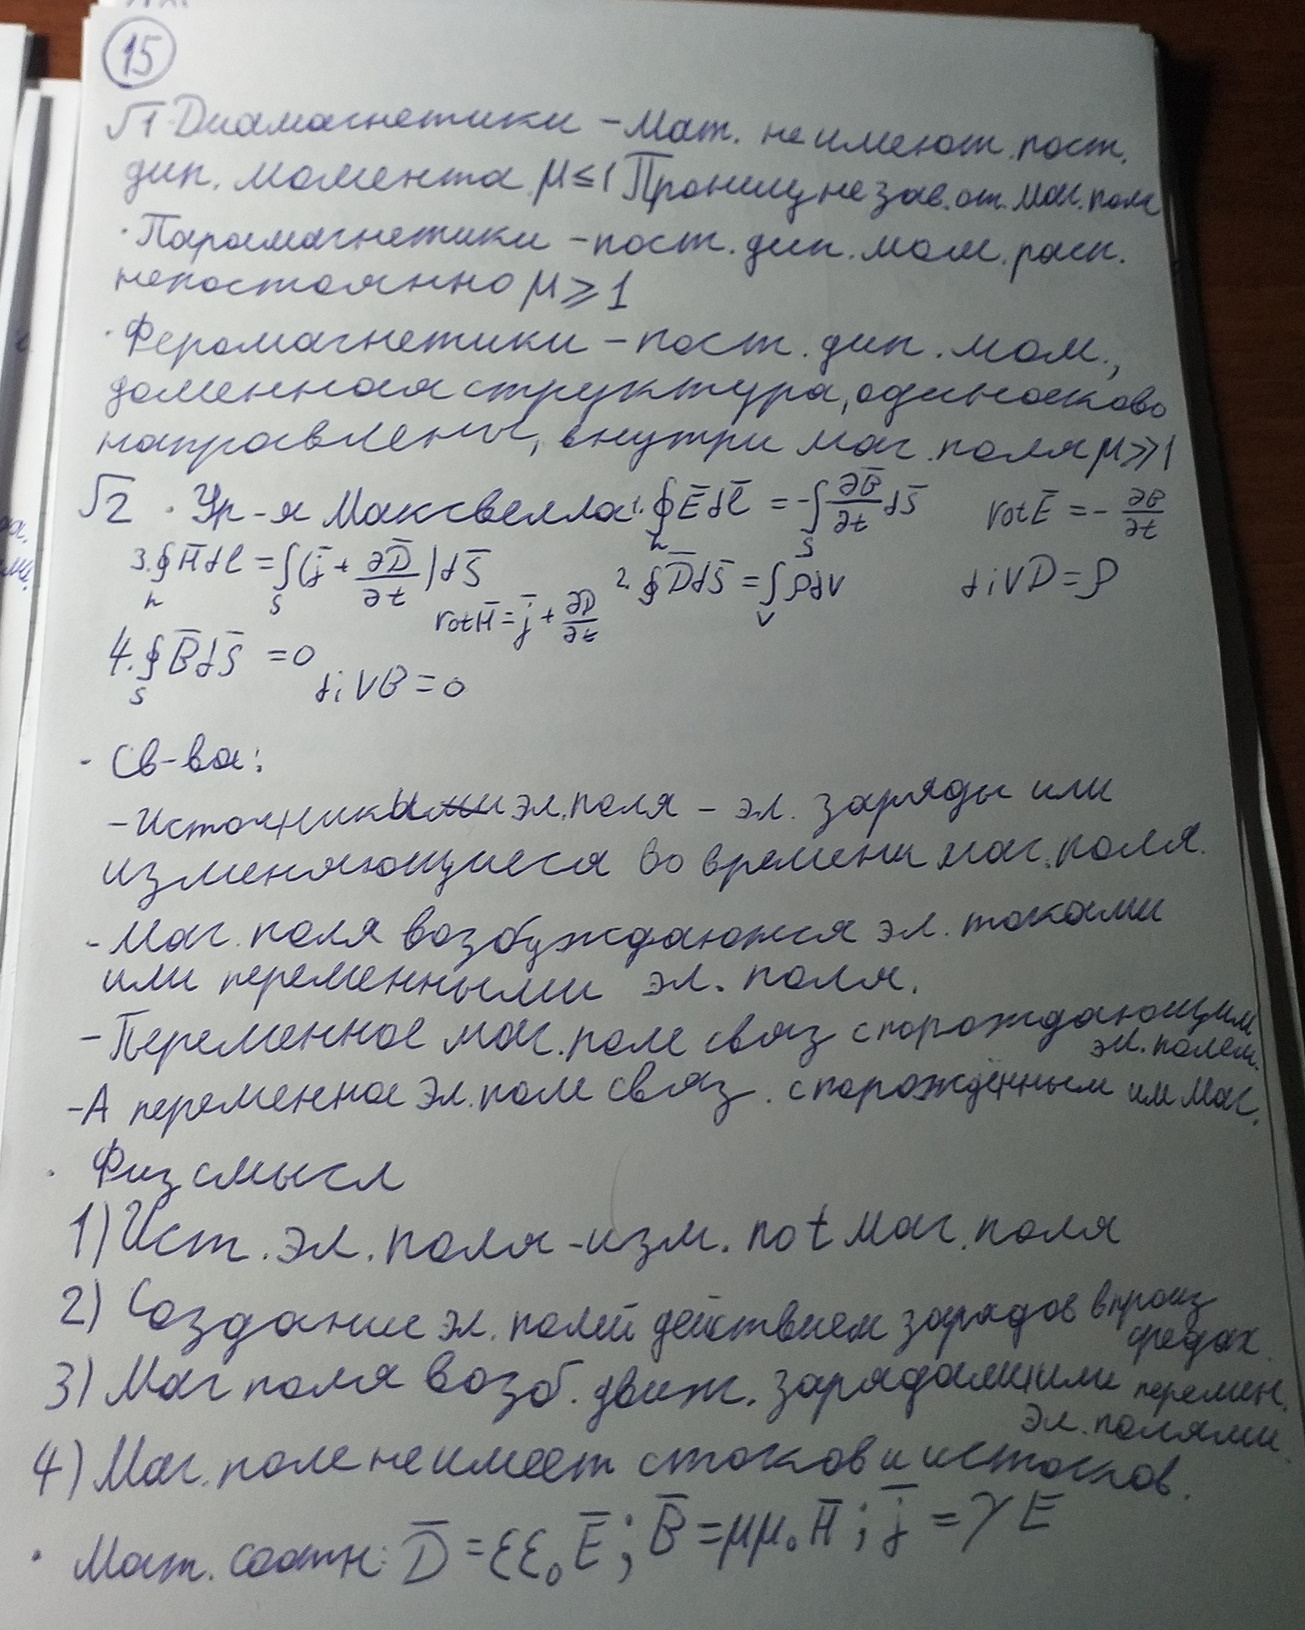 15
√1 Диамагнетики – Мат. не имеют пост.
дип. момента μ≤1 Прониц не зав. от. маг. поля
· Парамагнетики – пост. дип. мом. расп.
непостоянно μ⩾1
· Феромагнетики – пост. дип. мом.,
доменная структура, одинаково
направлены, внутри маг. поля μ⩾1
√2 · Ур-я Максвелла: 1. ∮_L E̅dl̅ = -∫_S ∂B̅/∂t dS̅ rotE̅ = - ∂B/∂t
3. ∮_L H̅dl = ∫_S (j̅ + ∂D̅/∂t)dS̅ rotH̅ = j̅ + ∂D/∂t 2. ∮D̅dS̅ = ∫_V ρdV divD = ρ
4. ∮_S B̅dS̅ = 0 divB = 0
· Св-ва:
– Источники эл. поля – эл. заряды или
изменяющиеся во времени маг. поля.
– Маг. поля возбуждаются эл. токами
или переменными эл. поля.
– Переменное маг. поле связ с порождающим
эл. полем.
– А переменное эл. поле связ. с порождённым им маг.
· Физ смысл
1) Ист. эл. поля – изм. по t маг. поля
2) Создание эл. полей действием зарядов в произ
средах
3) Маг поля возб. движ. зарядами или перемен.
эл. полями.
4) Маг. поле не имеет стоков и истоков.
· Мат. соотн: D̅ = εε₀E̅; B̅ = μμ₀H̅; j̅ = γE̅